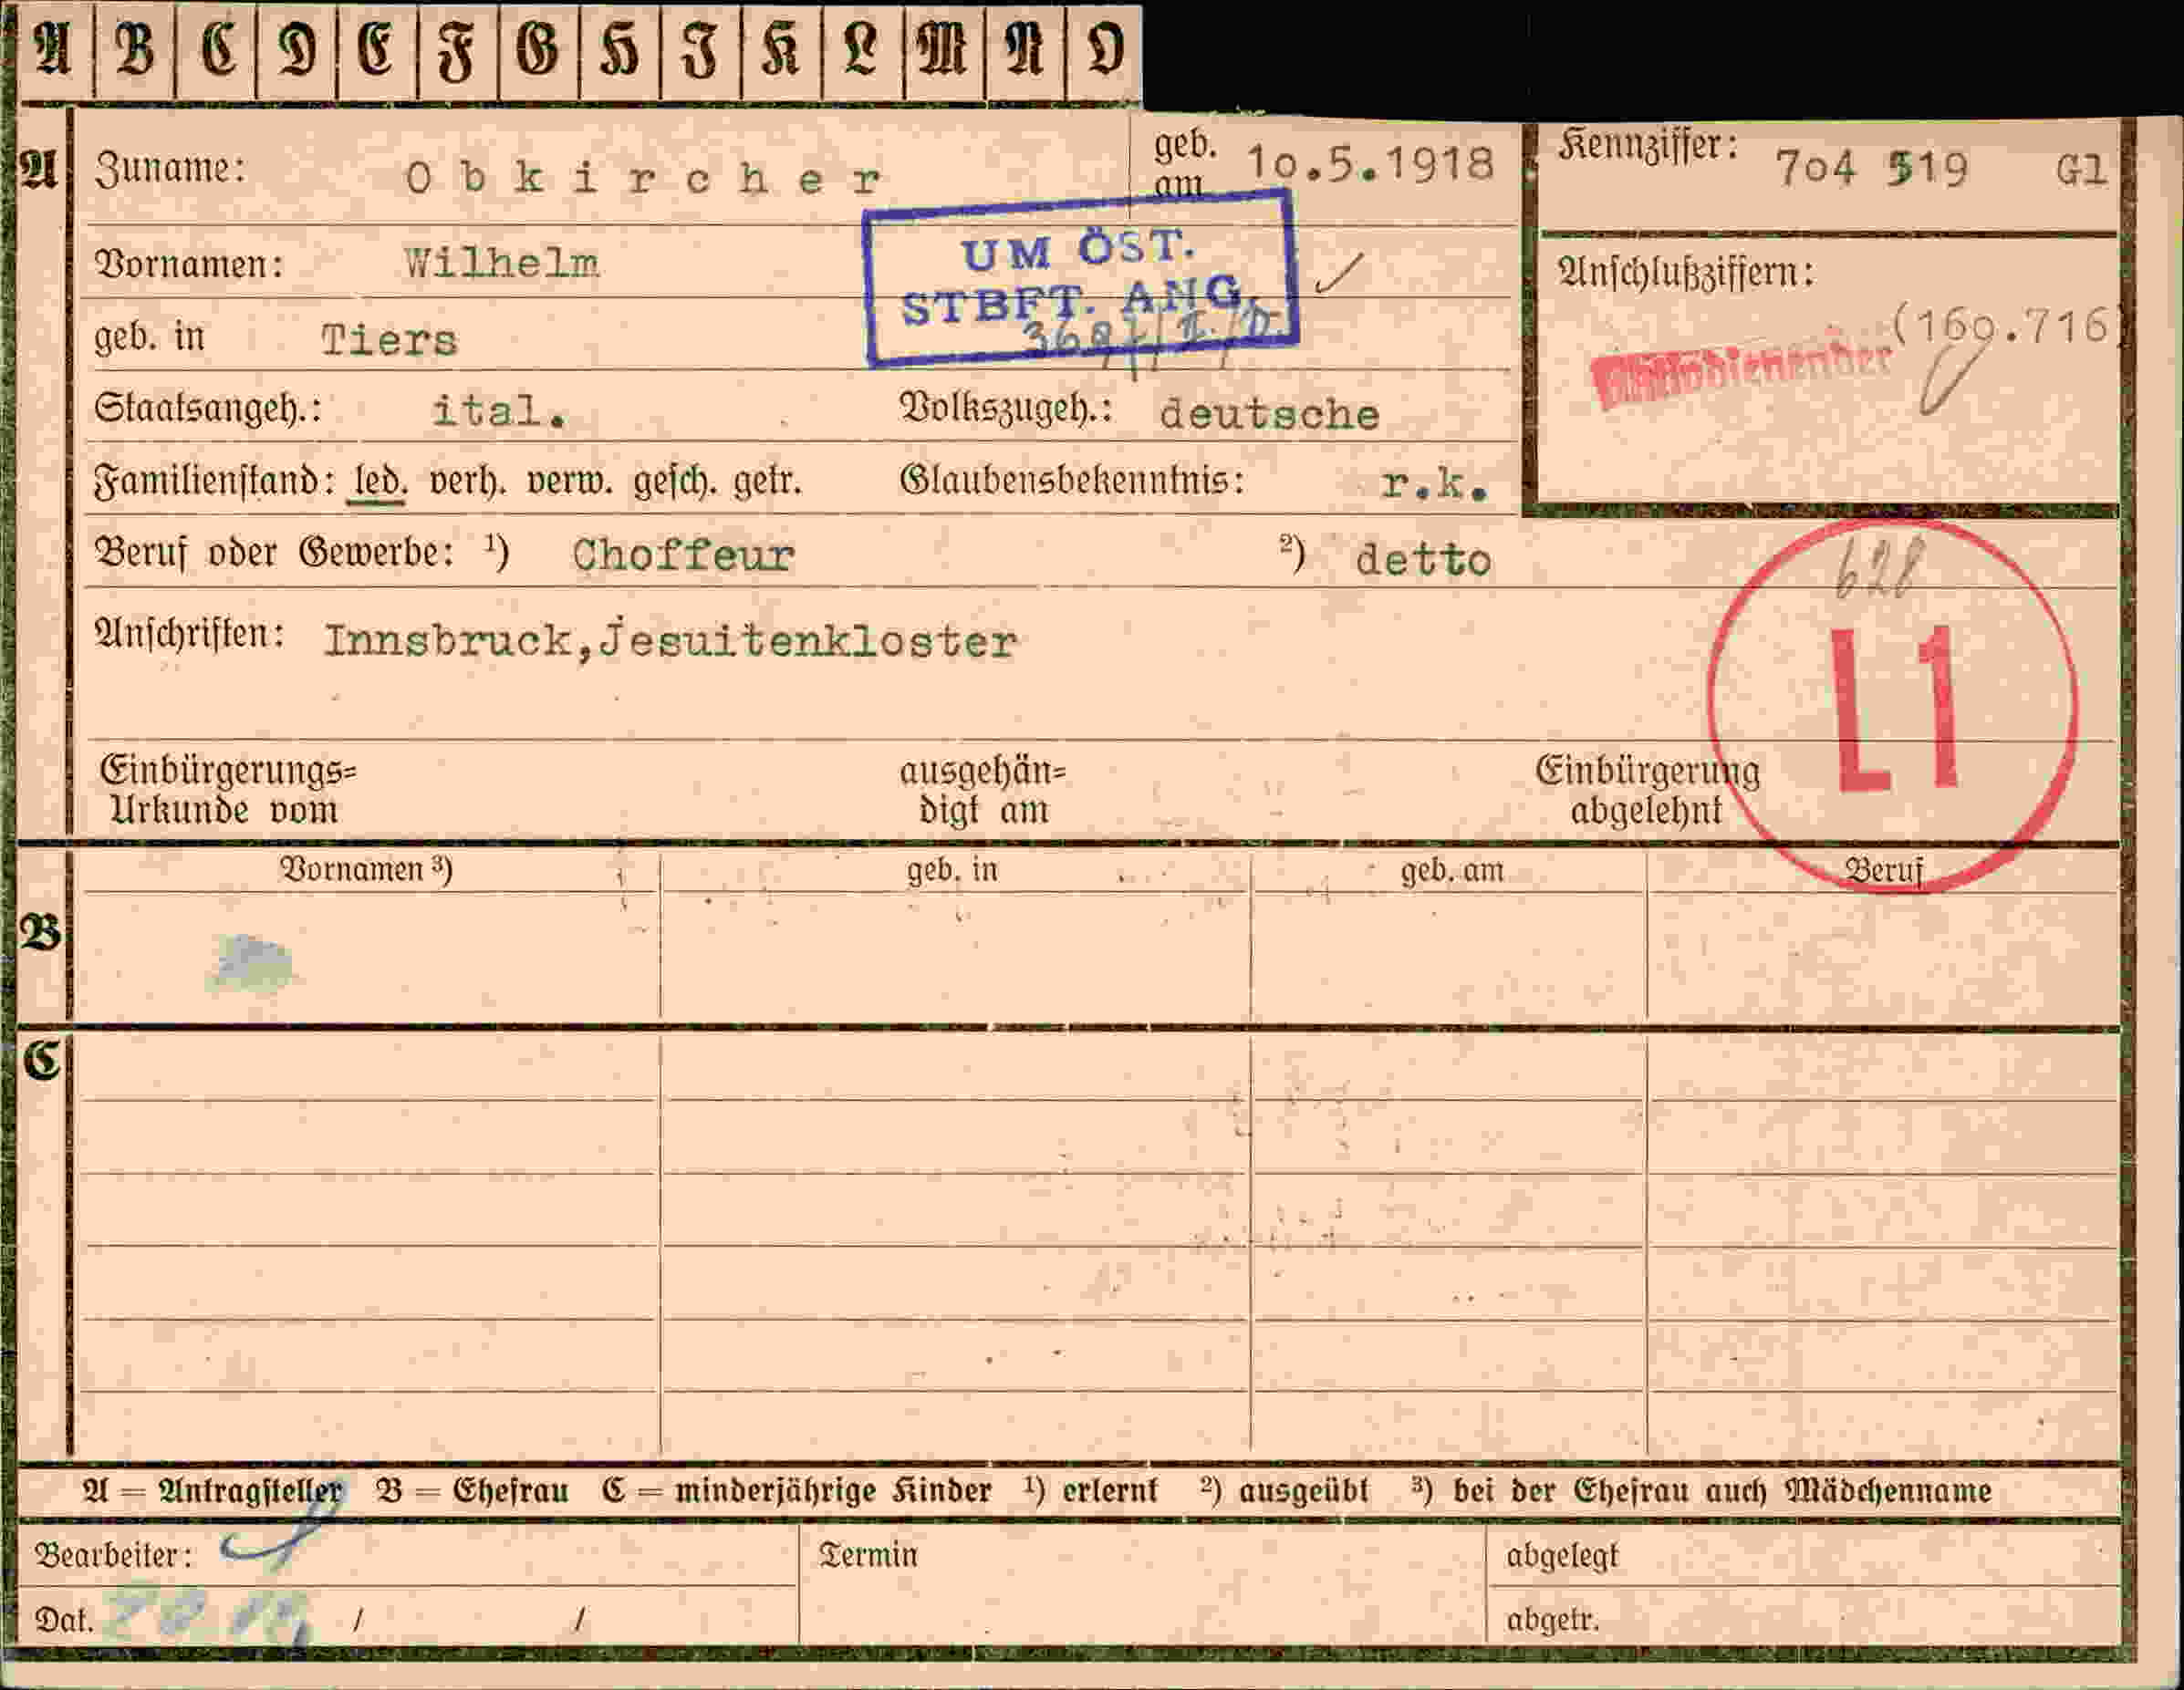 A B C D E F G H I K L M N O
A Zuname: Obkircher geb. am 10.5.1918 Kennziffer: 704 519 Gl
Vornamen: Wilhelm
UM ÖST.
STBFT. ANG.
Anschlußziffern:
(160.716)
geb. in Tiers
Staatsangeh.: ital. Volkszugeh.: deutsche
Familienstand: led. verh. verw. gesch. getr. Glaubensbekenntnis: r.k.
Beruf oder Gewerbe: ¹) Choffeur ²) detto
628
L1
Anschriften: Innsbruck, Jesuitenkloster
Einbürgerungs=
Urkunde vom
ausgehän=
digt am
Einbürgerung
abgelehnt
Vornamen ³) geb. in geb. am Beruf
B
C
A = Antragsteller B = Ehefrau C = minderjährige Kinder ¹) erlernt ²) ausgeübt ³) bei der Ehefrau auch Mädchenname
Bearbeiter: Termin abgelegt
Dat. / / abgetr.